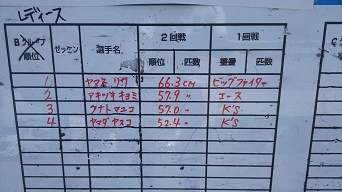 レディース
Bグループ 順位 ゼッケン 選手名 2回戦 1回戦
順位 匹数 重量 匹数
1 ヤマネ リサ 66.3CM ビッグファイター
2 アキツキ キヨミ 57.9 〃 エース
3 クナトマユコ 57.0 〃 K'S
4 ヤマダ ヤスコ 52.4 〃 K'S